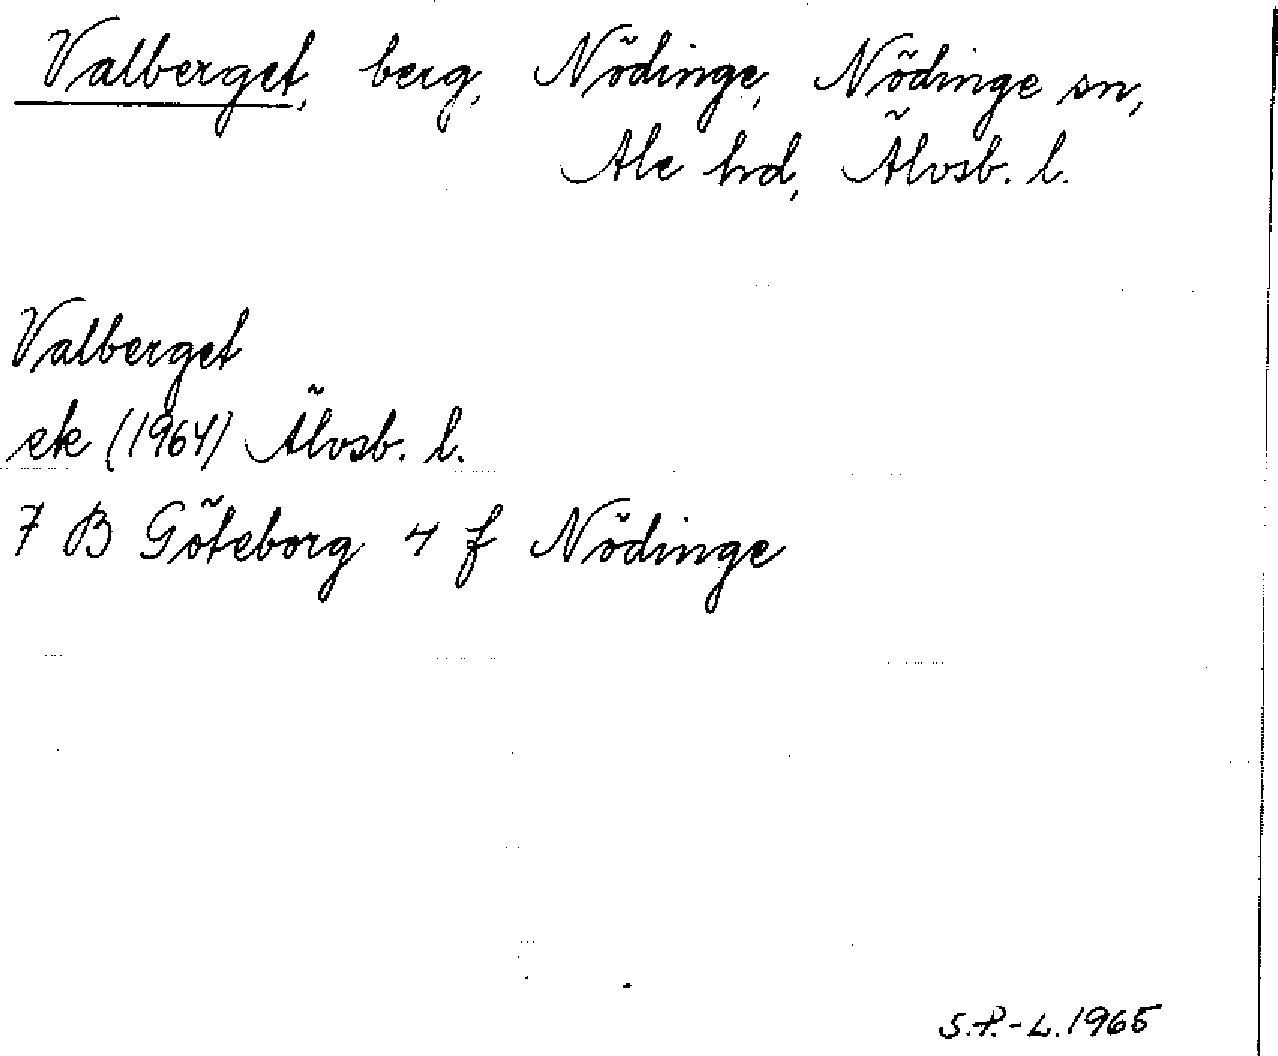 Valberget, berg, Nödinge, Nödinge sn,
Ale hd, Älvsb. l.
Valberget
ek (1964) Älvsb. l.
7 B Göteborg 4 f Nödinge
S.P.-L. 1965